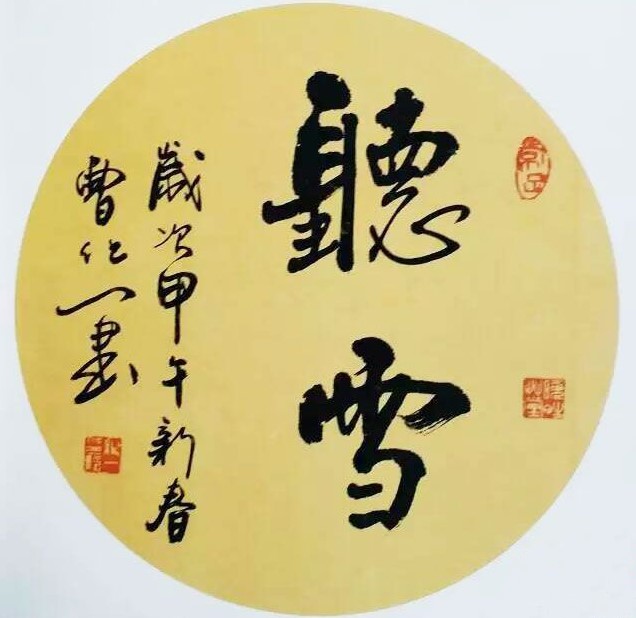 聽雪
歲次甲午新春
曹仕一書